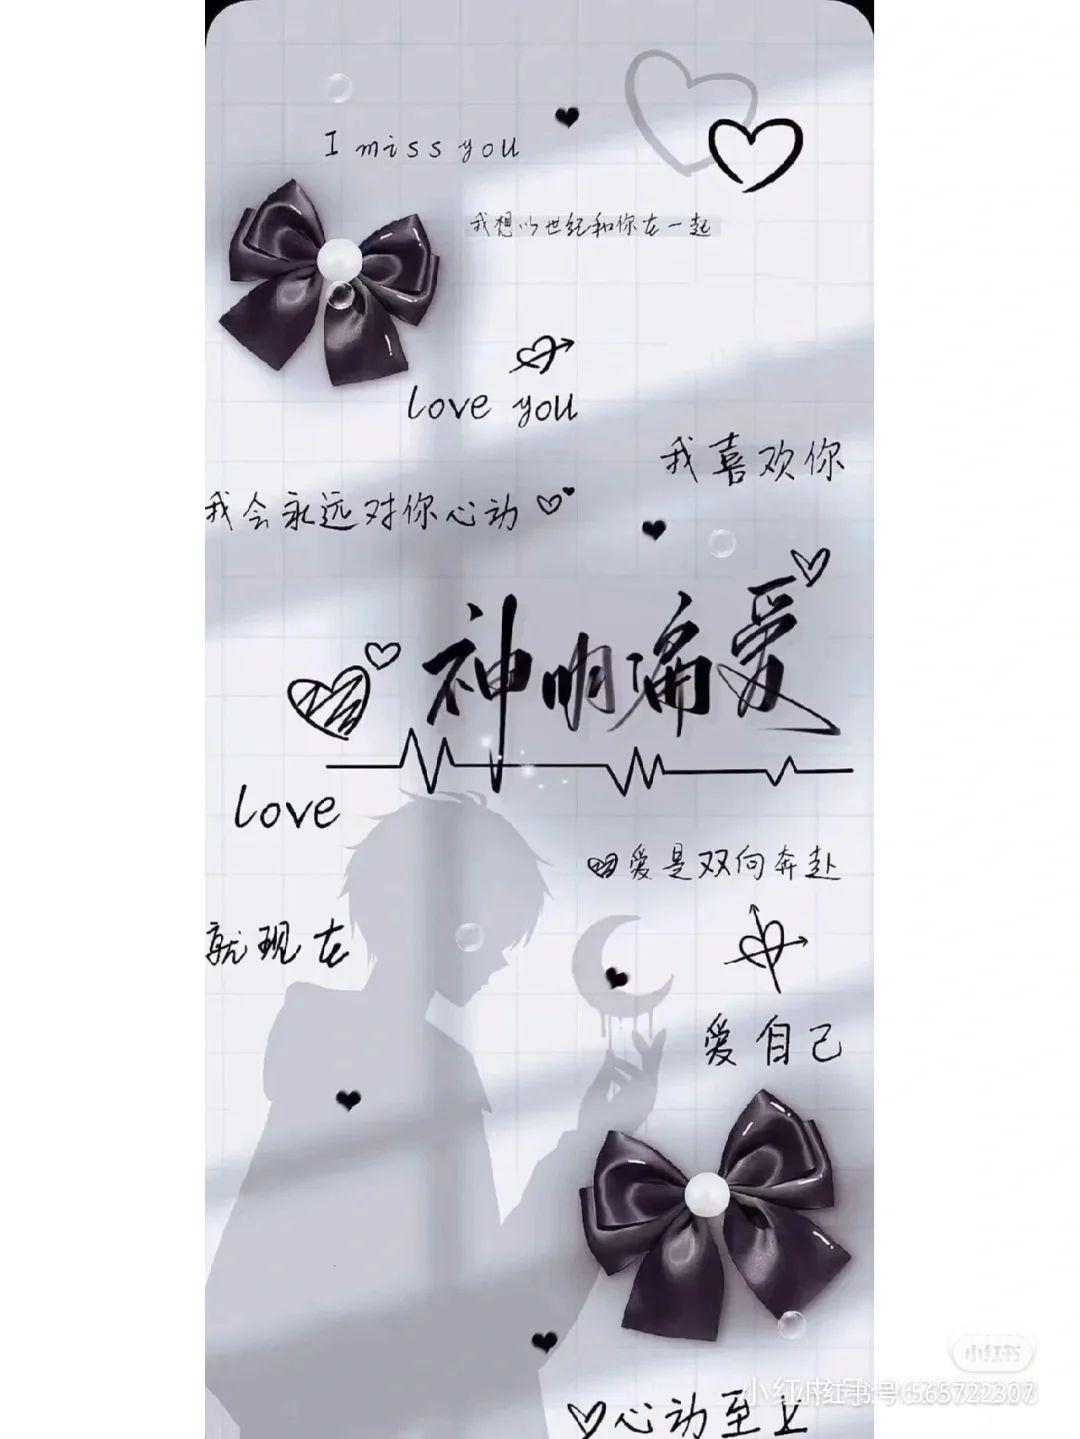 I miss you
我想以世纪和你在一起
love you
我喜欢你
我会永远对你心动
神明偏爱
love
爱是双向奔赴
就现在
爱自己
小红书
心动至上